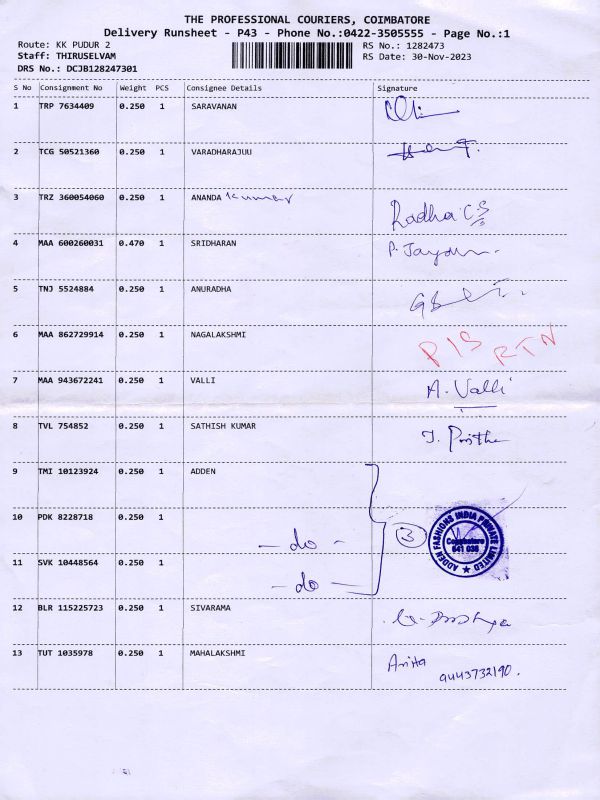 THE PROFESSIONAL COURIERS, COIMBATORE
Delivery Runsheet - P43 - Phone No.:0422-3505555 - Page No.:1
Route: KK PUDUR 2
RS No.: 1282473
Staff: THIRUSELVAM
RS Date: 30-Nov-2023
DRS No.: DCJB128247301
S No Consignment No Weight PCS Consignee Details Signature
1 TRP 7634409 0.250 1 SARAVANAN
2 TCG 50521360 0.250 1 VARADHARAJUU
3 TRZ 360054060 0.250 1 ANANDA Kumar
Radha C.S
4 MAA 600260031 0.470 1 SRIDHARAN
5 TNJ 5524884 0.250 1 ANURADHA
6 MAA 862729914 0.250 1 NAGALAKSHMI
RTN
7 MAA 943672241 0.250 1 VALLI A. Valli
8 TVL 754852 0.250 1 SATHISH KUMAR
9 TMI 10123924 0.250 1 ADDEN
10 PDK 8228718 0.250 1
- do -
3
ADDEN FASHIONS INDIA PRIVATE LIMITED
Coimbatore
641 038
11 SVK 10448564 0.250 1
- do -
12 BLR 115225723 0.250 1 SIVARAMA
13 TUT 1035978 0.250 1 MAHALAKSHMI Anitha
9443732190.